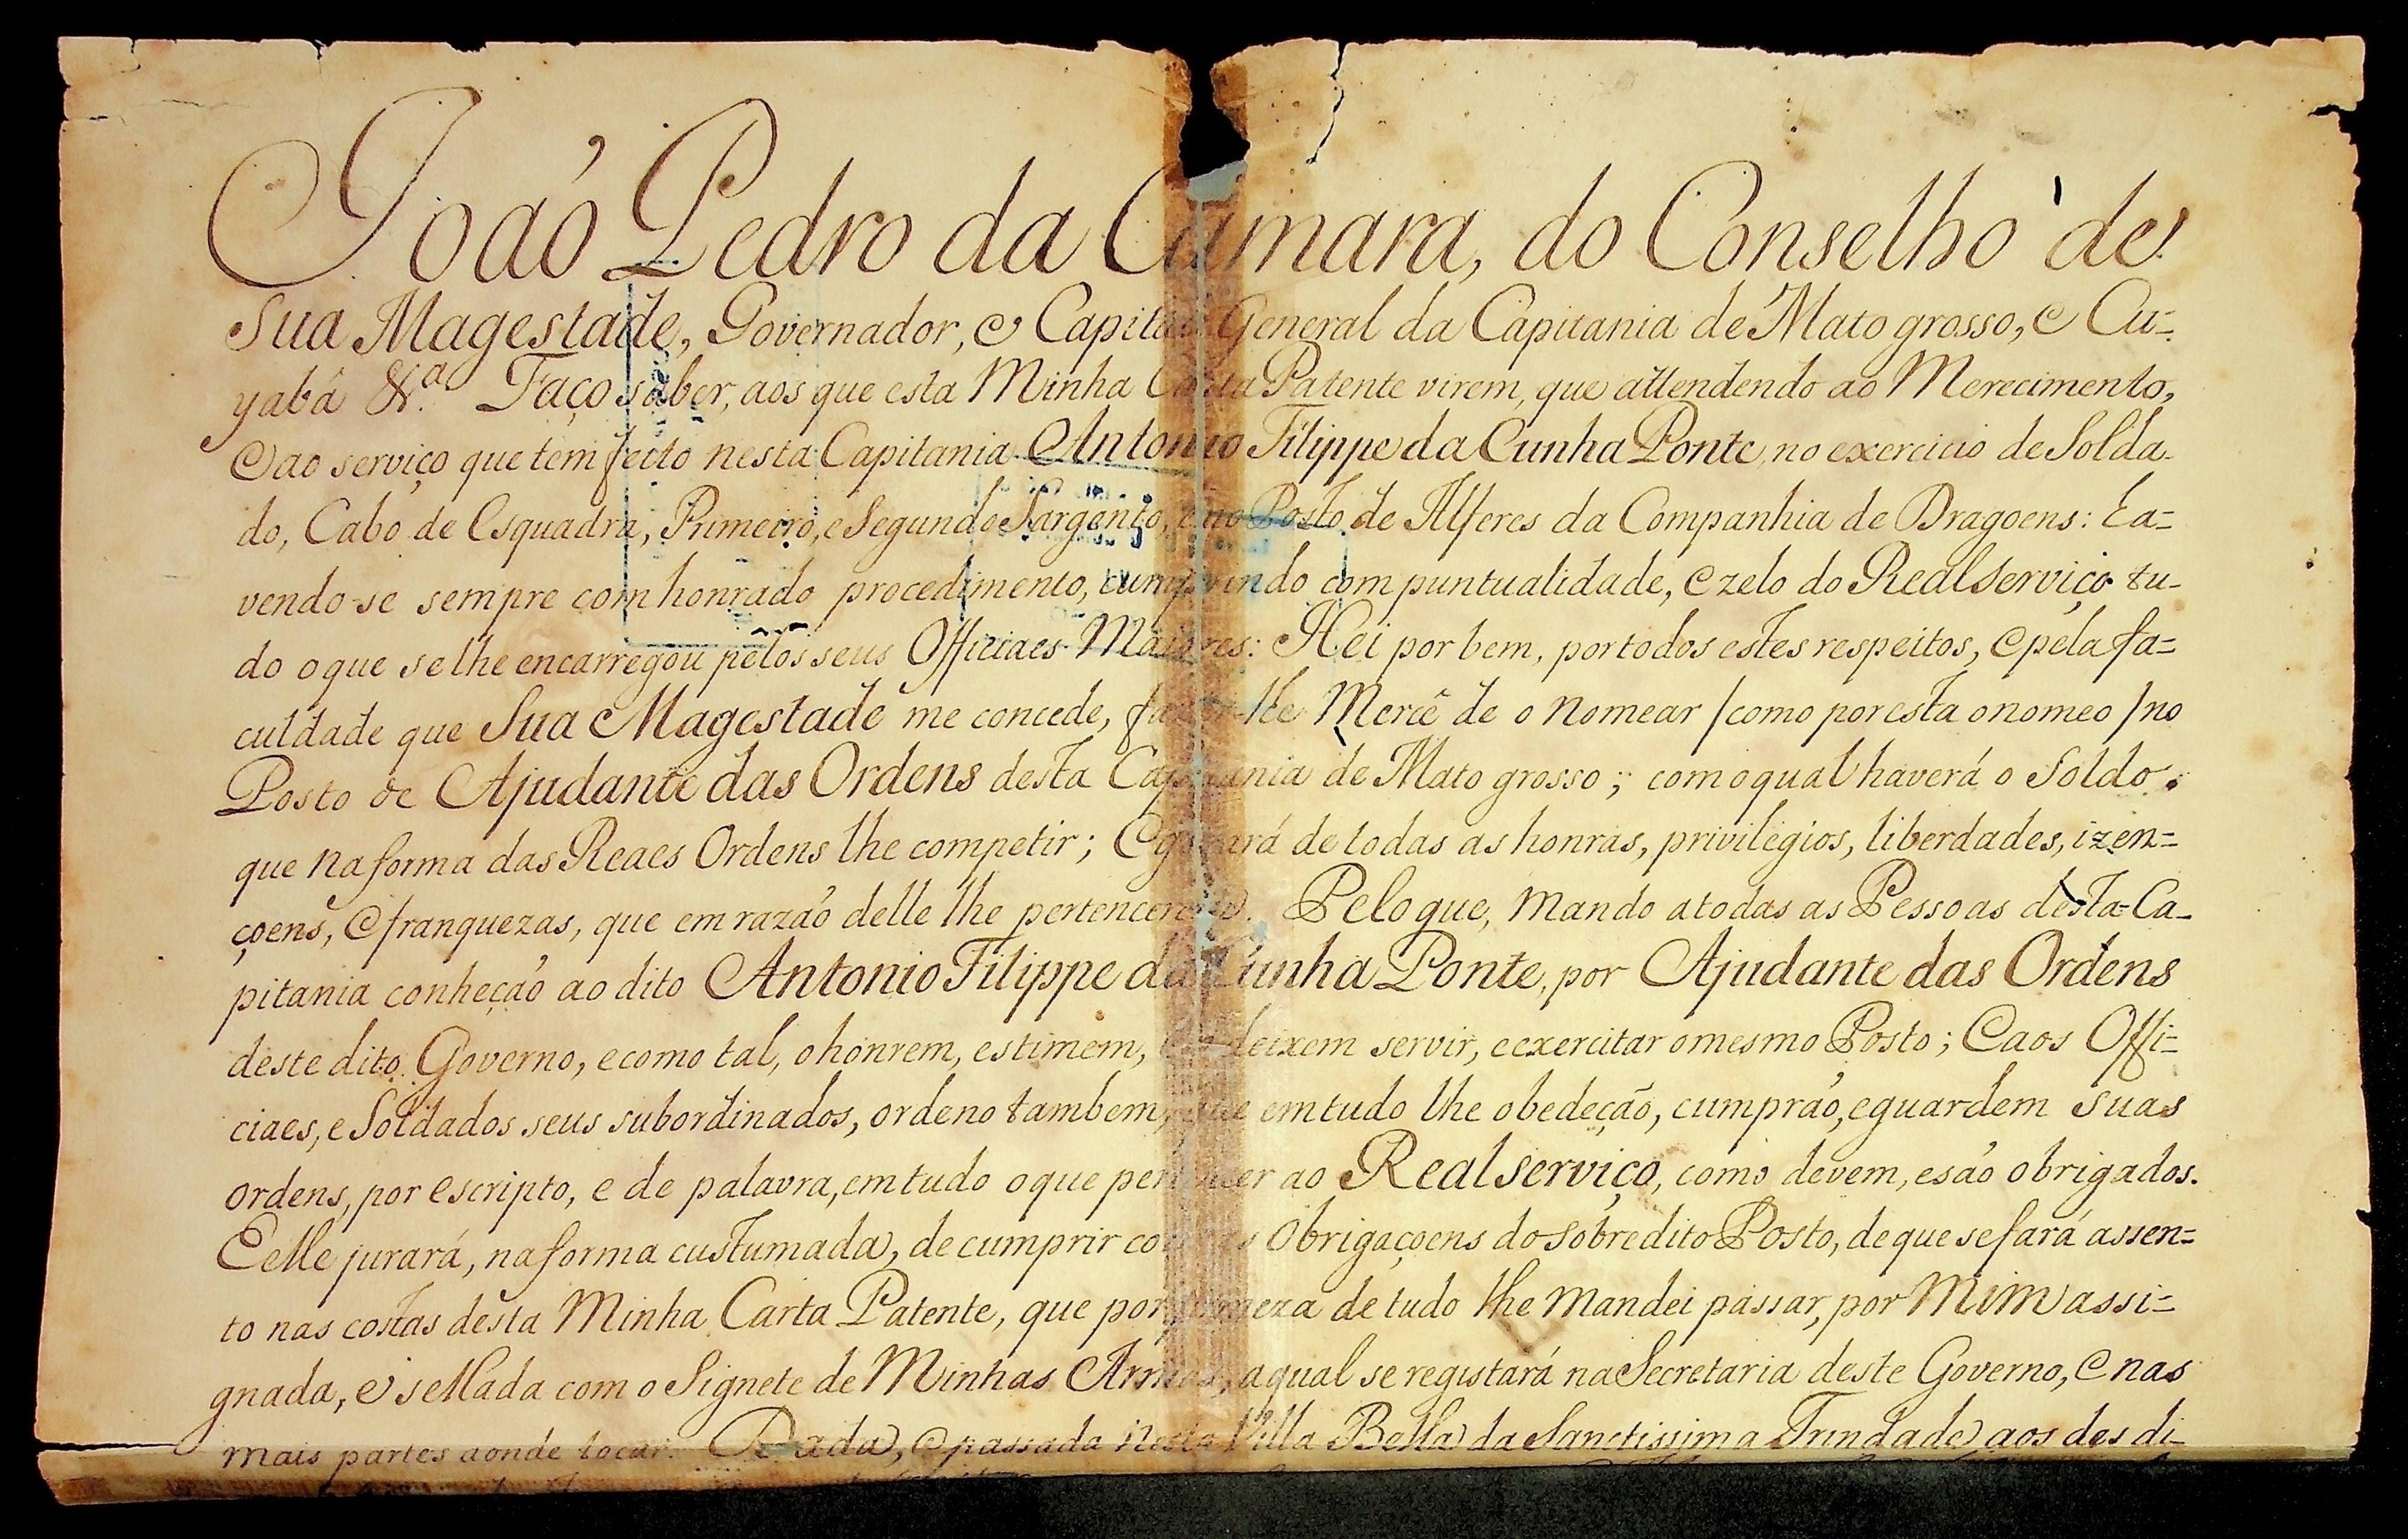 João Pedro da Camara, do Conselho de
Sua Magestade, Governador, e Capitão General da Capitania de Mato grosso, e Cu=
yabá &.ª Faço saber, aos que esta Minha Carta Patente virem, que attendendo ao Merecimento,
e ao serviço que tem feito nesta Capitania Antonio Filippe da Cunha Ponte, no exercicio de Solda-
do, Cabo de Esquadra, Primeiro, e Segundo Sargento, e no Posto de Alferes da Companhia de Dragoens: Ea=
vendo-se sempre com honrado procedimento, cumprindo com puntualidade, e zelo do Real serviço tu-
do o que se lhe encarregou pelos seus Officiaes Maiores: Hei por bem, por todos estes respeitos, e pela fa=
culdade que Sua Magestade me concede, fazer-lhe Mercê de o nomear /como por esta o nomeo/ no
Posto de Ajudante das Ordens desta Capitania de Mato grosso; com o qual haverá o Soldo,
que na forma das Reaes Ordens lhe competir; E gozará de todas as honras, privilegios, liberdades, izen=
çoens, e franquezas, que em razão delle lhe pertencerem. Pelo que, Mando a todas as Pessoas desta Ca-
pitania conheção ao dito Antonio Filippe da Cunha Ponte, por Ajudante das Ordens
deste dito Governo, e como tal, o honrem, estimem, e deixem servir, e exercitar o mesmo Posto; E aos Offi=
ciaes, e Soldados seus subordinados, ordeno tambem, que em tudo lhe obedeção, cumprão, e guardem suas
ordens, por escripto, e de palavra, em tudo o que pertencer ao Real serviço, como devem, e são obrigados.
E elle jurará, na forma custumada, de cumprir com as obrigaçoens do sobredito Posto, de que se fará assen=
to nas costas desta Minha Carta Patente, que por firmeza de tudo lhe Mandei passar, por Mim assi=
gnada, e sellada com o Signete de Minhas Armas, a qual se registará na Secretaria deste Governo, e nas
mais partes aonde tocar. Dada, e passada nesta Villa Bella da Sanctissima Trindade aos des di-